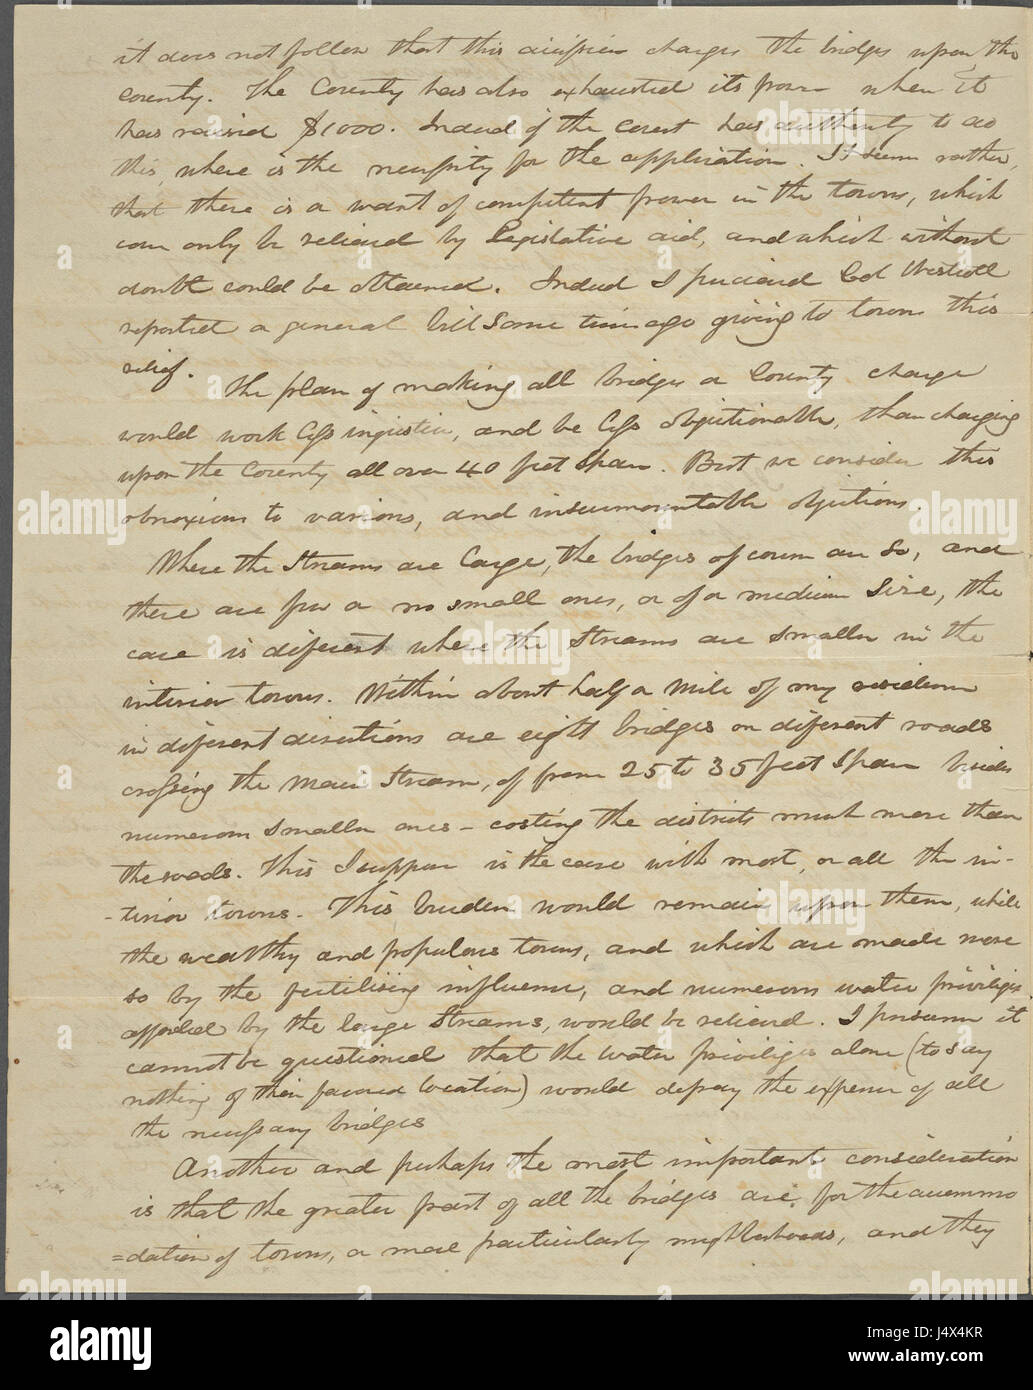 it does not follow that this decision charges the bridges upon the
county. The County has also exhausted its power when it
has raised $1000. Indeed if the Court has authority to do
this, where is the necessity for the application. It seems rather,
that there is a want of competent power in the towns, which
can only be relieved by Legislative aid, and which without
doubt could be obtained. Indeed I perceived Col
reported a general bill some time ago giving to towns this
relief.
The plan of making all bridges a County charge
would work less injustice, and be less objectionable, than charging
upon the County all over 40 feet Span. But we consider this
obnoxious to various, and insurmountable objections.
Where the Streams are large, the bridges of course are so, and
there are few or no small ones, or of a medium Size, the
case is different where the Streams are smaller in the
interior towns. Within about half a mile of my residence
in different directions are eight bridges on different roads
crossing the main Stream, of from 25 to 35 feet Span besides
numerous smaller ones - costing the districts much more than
the roads. This I suppose is the case with most, or all the in-
-terior towns. This burden would remain upon them, while
the wealthy and populous towns, and which are made more
so by the fertilising influence, and numerous water privileges
afforded by the large Streams, would be relieved. I presume it
cannot be questioned that the water privileges alone (to say
nothing of their favored location) would defray the expense of all
the necessary bridges
Another and perhaps the most important consideration
is that the greater part of all the bridges are, for the accommo
=dation of towns, or more particularly neighborhoods, and they
alamy
J4X4KR
www.alamy.com